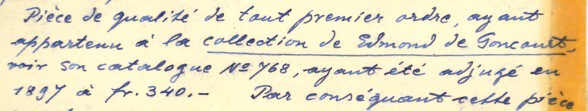 Pièce de qualité de tout premier ordre, ayant
appartenu à la collection de Edmond de Goncourt,
voir son catalogue No 768, ayant été adjugé en
1897 à fr. 340.– Par conséquant cette pièce